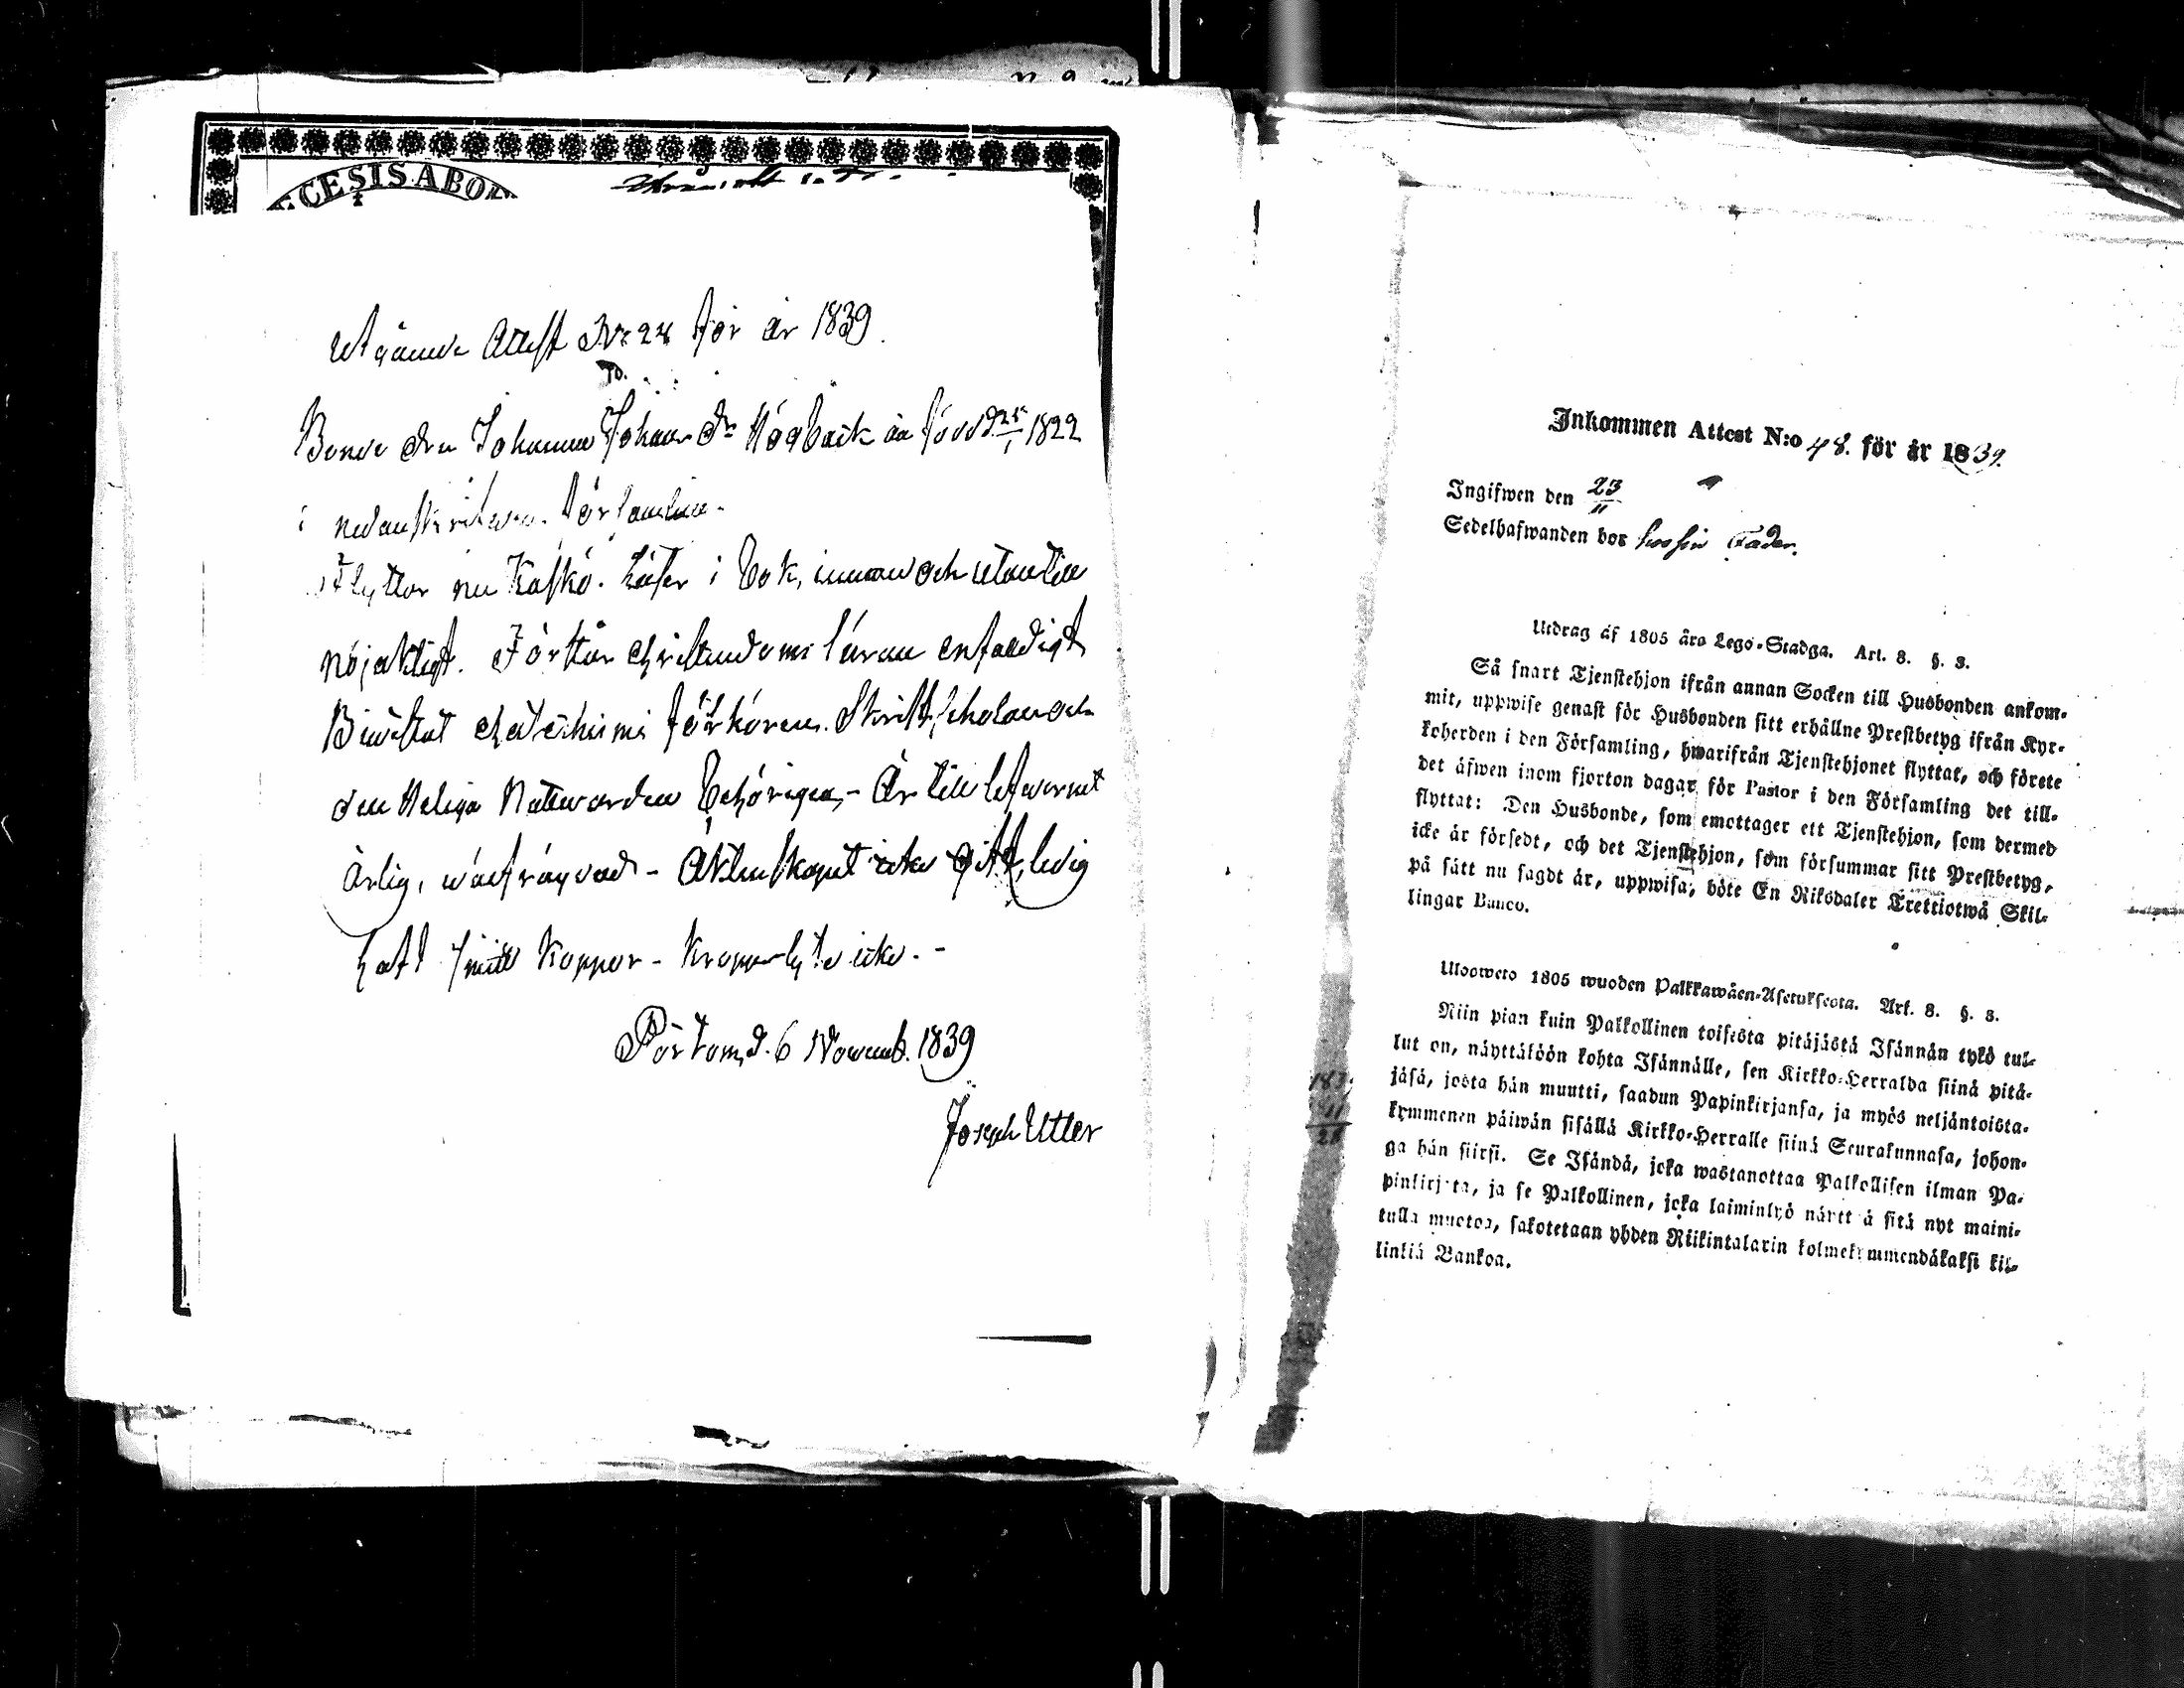 CESIS·ABO
Utgående Attest No 24 för år 1839.
Bonde Son Johannes Johans Sn Högback är född 25/1 1822
i nedanskrifwen församling.
Flyttar nu Kaskö. Läser i bok, innan och utantill
nöjaktigt. Förstår Christendoms läran enfaldigt
Biwistat Catechismi förhören, Skriftscholan och
den Heliga Nattwarden behörigen, - Är till lefwernet
ärlig, wälfrägdad - Äktenskapet icke gift, ledig
haft Koppor - Kroppslyte icke. -
Pörtom, d. 6 Novemb. 1839
Joseph Utter
Inkommen Attest N:o 48. för år 1839.
Ingifwen den 23/11
Sedelhafwanden bor hos sin Fader.
Utdrag af 1805 års Lego-Stadga. Art. 8. §. 3.
Så snart Tjenstehjon ifrån annan Socken till Husbonden ankom-
mit, uppwise genast för Husbonden sitt erhållne Prestbetyg ifrån Kyr-
koherden i den Församling, hwarifrån Tjenstehjonet flyttat, och förete
det äfwen inom fjorton dagar för Pastor i den Församling det till-
flyttat: Den Husbonde, som emottager ett Tjenstehjon, som dermed
icke är försedt, och det Tjenstehjon, som försummar sitt Prestbetyg,
på sätt nu sagdt är, uppwisa, böte En Riksdaler Trettiotwå Skil-
lingar Banco.
Ulosweto 1805 wuoden Palkkawäen-Asetuksesta. Art. 8. §. 3.
Niin pian kuin Palkollinen toisesta pitäjästä Isännän tykö tul-
lut on, näyttäköön kohta Isännälle, sen Kirkko-Herralda siinä pitä-
jäsä, josta hän muutti, saadun Papinkirjansa, ja myös neljäntoista-
kymmenen päiwän sisällä Kirkko-Herralle siinä Seurakunnasa, johon-
ga hän siirsi. Se Isändä, joka wastanottaa Palkollisen ilman Pa-
pinkirjata, ja se Palkollinen, joka laiminlyö näyttää sitä nyt maini-
tulla muotoa, sakotetaan yhden Riikintalarin kolmekymmendäkaksi kil-
linkiä Bankoa.